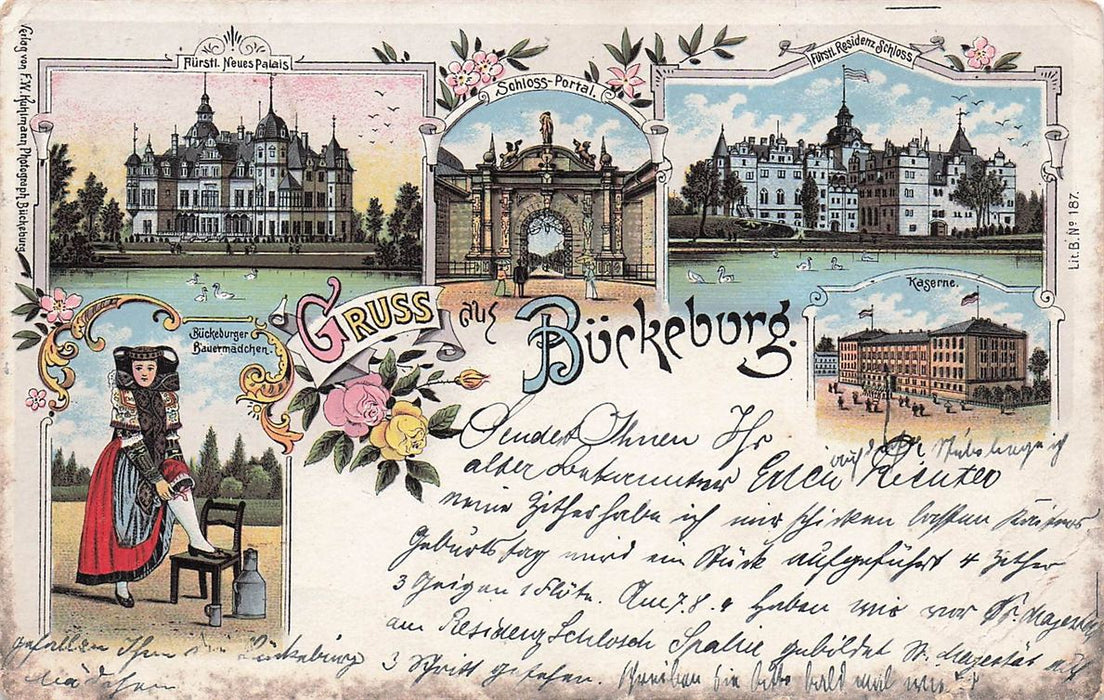 Verlag von F.W. Kuhlmann Photograph, Bückeburg.
Fürstl. Neues Palais
Schloss-Portal.
Fürstl. Residenz-Schloss
Lit. B. № 187.
Kaserne.
Bückeburger
Bauermädchen.
Gruss aus Bückeburg.
Sendet Ihnen Ihr
alter Bekannter Erich Richter
auf der Stube
meine Zither habe ich mir schicken lassen Kaisers
Geburtstag wird ein Stück aufgeführt 4 Zither
3 Geigen 1 Flöte. Am 7.8. haben wir vor Sr. Majestät
am Residenz Schlosch Spalir gebildet Sr. Majestät
3 Schritt gesehen. Schreiben Sie bitte bald mal
gefallen Ihn die Bückeburg
Mädchen